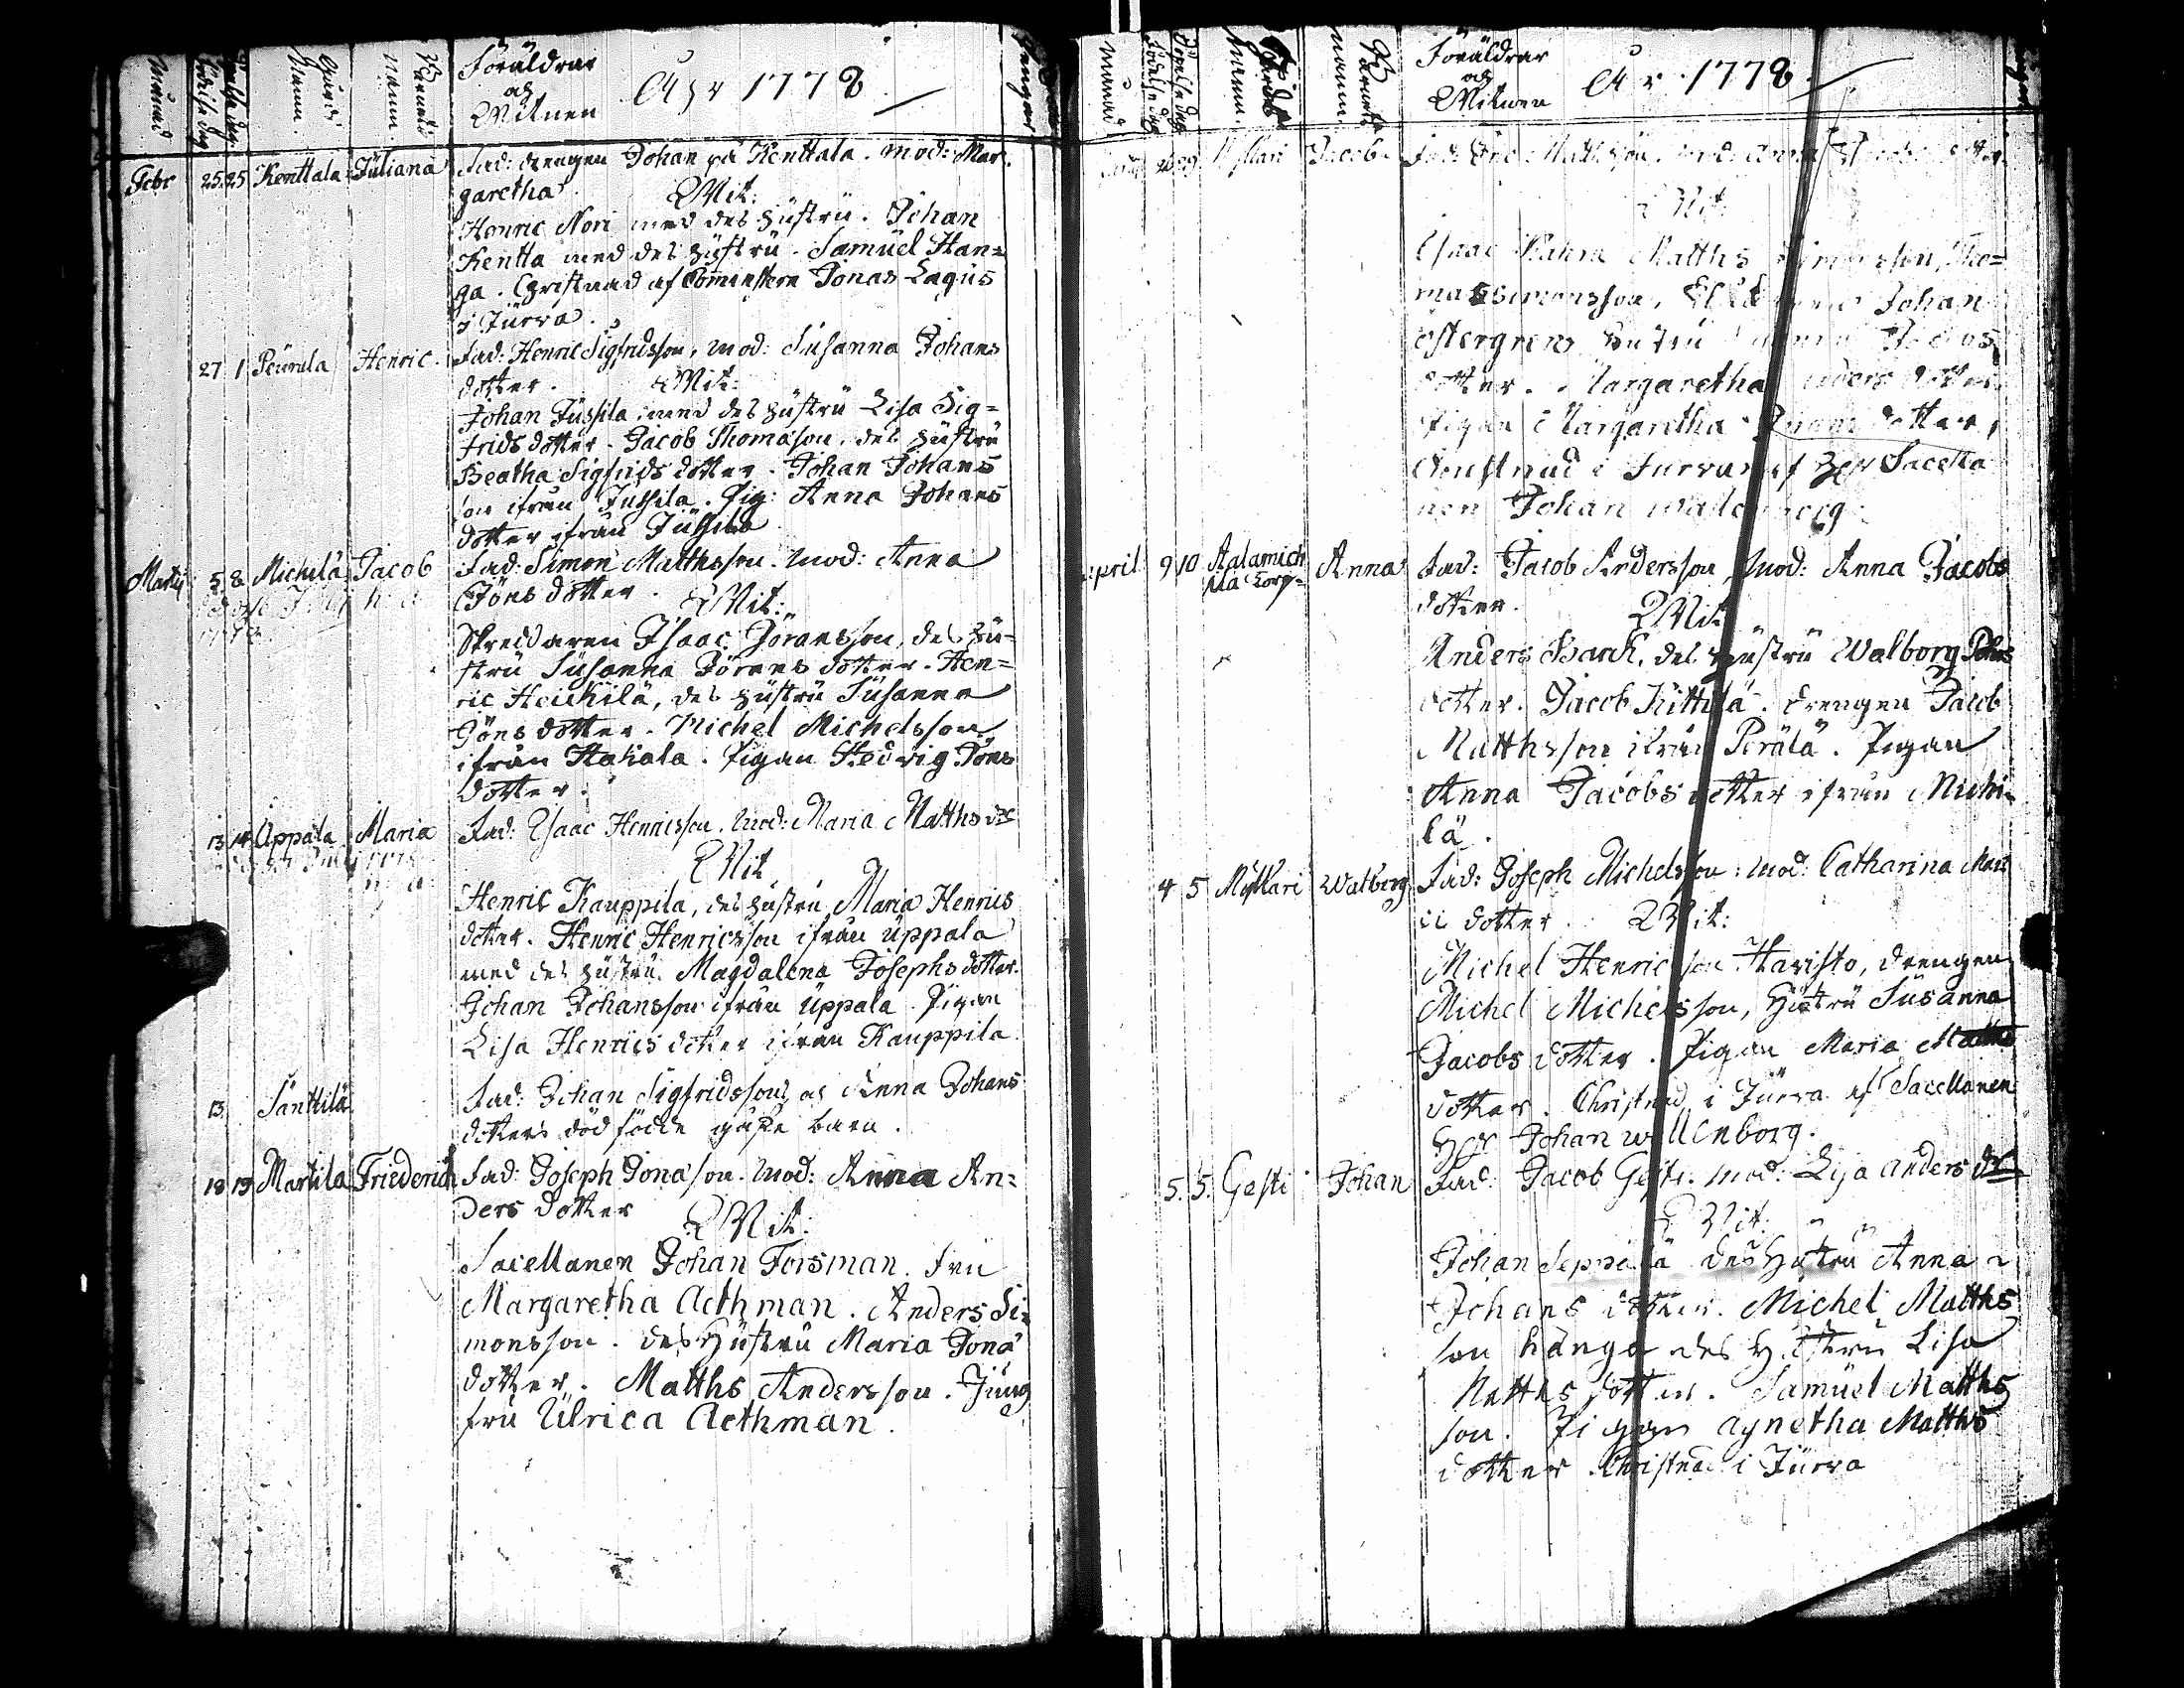 Månad
Födelse dag
Döpelse dag
Gårds Namn.
Barnets namn
Föräldrar och Witnen
År 1778
Pengar
Febr 25. 25 Kenttala Juliana Fad: drengen Johan på Kenttala. Mod: Mar-
garetha. Wit:
Henric Nori med des Hustru. Johan
Kentta med des Hustru. Samuel Han=
ga. Christnad af Comministern Jonas Lagus
i Jurva.
27 1 Peurala Henric. Fad: Henric Sigfridsson, Mod: Susanna Johans
dotter. Wit:
Johan Jussila med des Hustru Lisa Sig=
frids dotter. Jacob Thomasson, des Hustru
Beatha Sigfrids dotter. Johan Johans
son ifrån Jussila. Pig: Anna Johans
dotter ifrån Jussila
Martij 5 8 Michilä Jacob Fad: Simon Matthsson. Mod: Anna
Jöns dotter. Wit:
Skreddaren Isaac Göransson, des Hu-
stru Susanna Görans dotter. Hen=
ric Heickilä, des Hustru Susanna
Göns dotter. Michel Michelsson
ifrån Hakala. Pigan Hedvig Jöns
dotter.
13 14 Uppala Maria Fad: Isaac Henricsson. Mod: Maria Matths dr
Wit
Henric Kauppila, des Hustru Maria Henrics
dotter. Henric Henricsson ifrån Uppala
med des Hustru Magdalena Josephs dotter.
Johan Johansson ifrån Uppala. Pigan
Lisa Henrics dotter ifrån Kauppila.
13 Santtila Fad: Johan Sigfridsson och Anna Johans
dotters död födde barn.
18 19 Martila Friederich Fad: Joseph Jonasson. Mod: Anna An=
ders dotter
Wit:
Sacellanen Johan Forsman. Fru
Margaretha Aethman. Anders Si=
monsson. des Hustru Maria Jona
dotter. Matths Andersson. Jung
fru Ulrica Aethman.
Månad
Födelse dag
Döpelse dag
Gårds namn.
Barnets namn.
Föräldrar och Witnen
År 1778
Jacob
Wit:
Isaac Matths Simonsson, Tho=
mas Simonsson, Johan
östergrens Hustru
dotter. Margaretha Anders dotter
Pigan Margaretha dotter,
Christnad i Jurva af Herr Sacella
nen Johan Wallenborg.
April 9 10 Aalamich
ila Anna Fad: Jacob Andersson, Mod: Anna Jacobs
dotter. Wit
Anders Back, des Hustru Walborg Johans
dotter. Jacob Kittilä. Drengen Jacob
Matthsson ifrån Perälä. Pigan
Anna Jacobs dotter ifrån Michi-
lä.
4 5 Myllkari Walborg Fad: Joseph Michelsson: Mod: Catharina
dotter. Wit:
Michel Henricsson Haristo, drengen
Michel Michelsson, Hustru Susanna
Jacobs dotter. Pigan Maria Matths
dotter. Christnad i Jurva af Sacellanen
Herr Johan Wallenborg.
5. 5. Gesti Johan Fad: Jacob Gesti. Mod: Lisa Anders dr
Wit:
Johan Seppälä des Hustru Anna
Johans dotter. Michel Matths
son hånga des Hustru Lisa
Matths dotter. Samuel Matths
son. Pigan Agnetha Matths
dotter. Christnad i Jurva